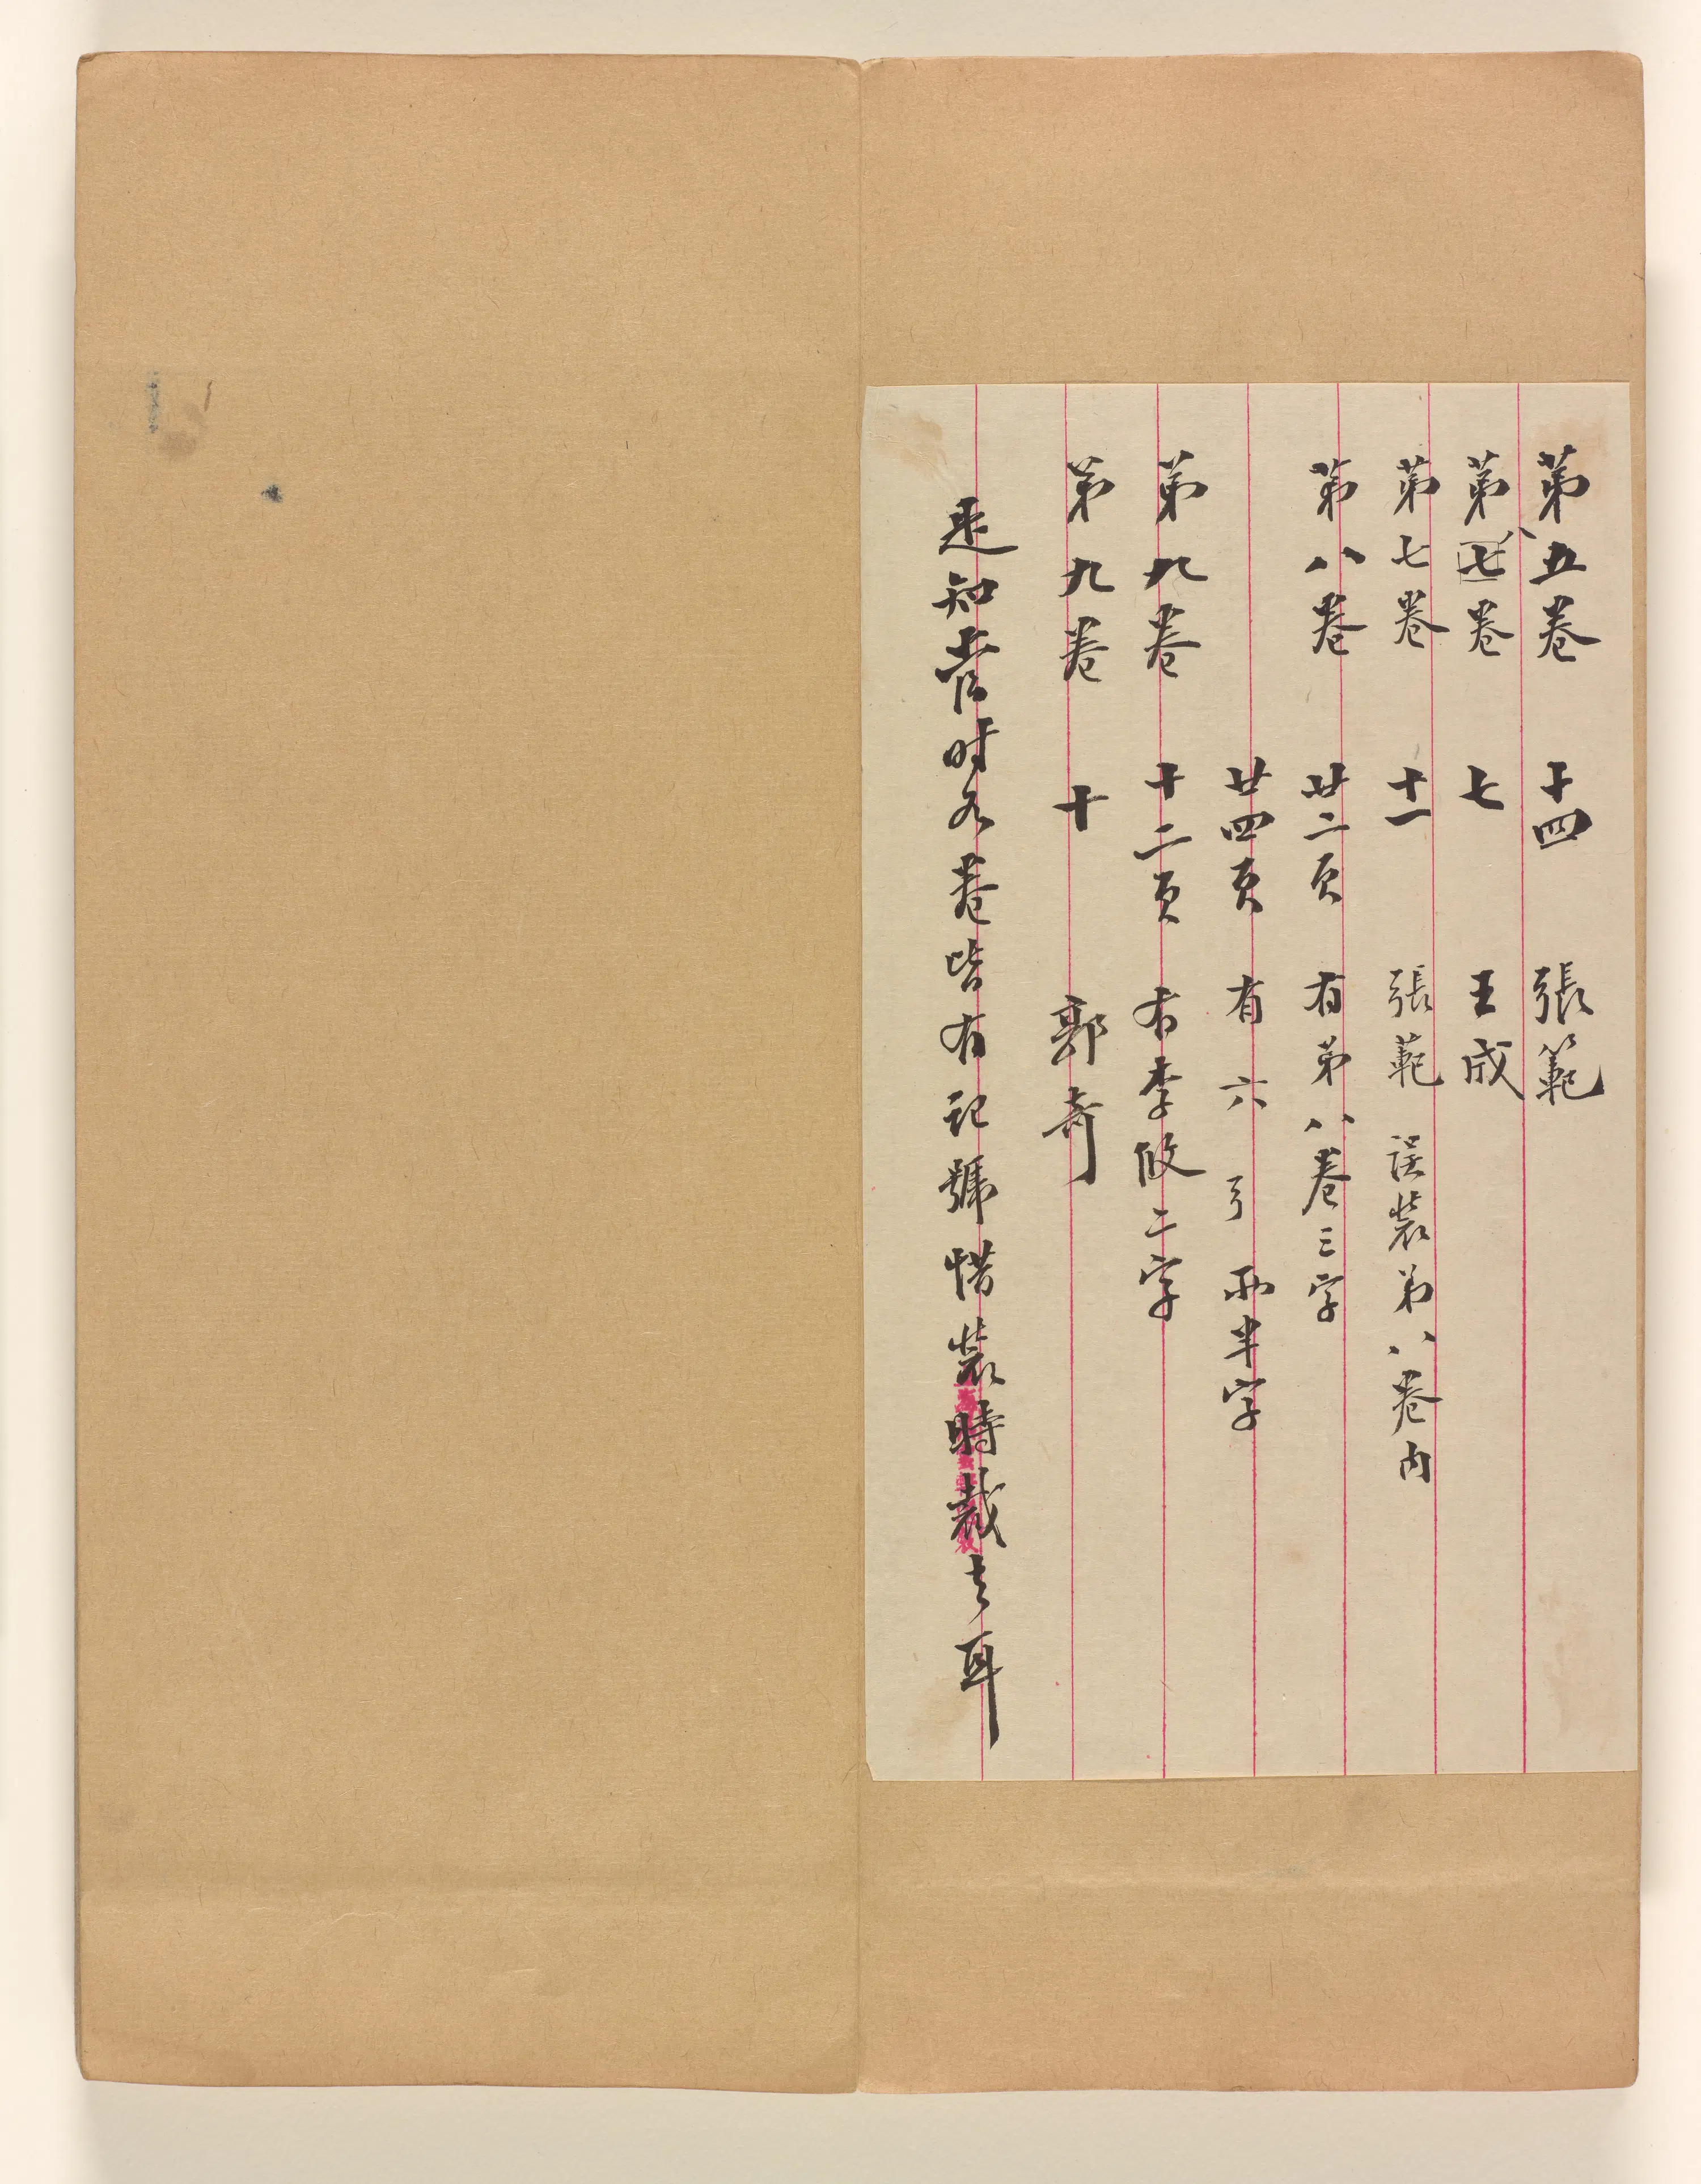 第五卷 十四 張範
第七八卷 七 王成
第七卷 十一 張範 誤裝第八卷內
第八卷 廿二頁 有第八卷三字
廿四頁 有六 弓 兩半字
第九卷 十二頁 有李攸二字
第九卷 十 郭奇
是知當時各卷皆有記號惜裝時裁去耳